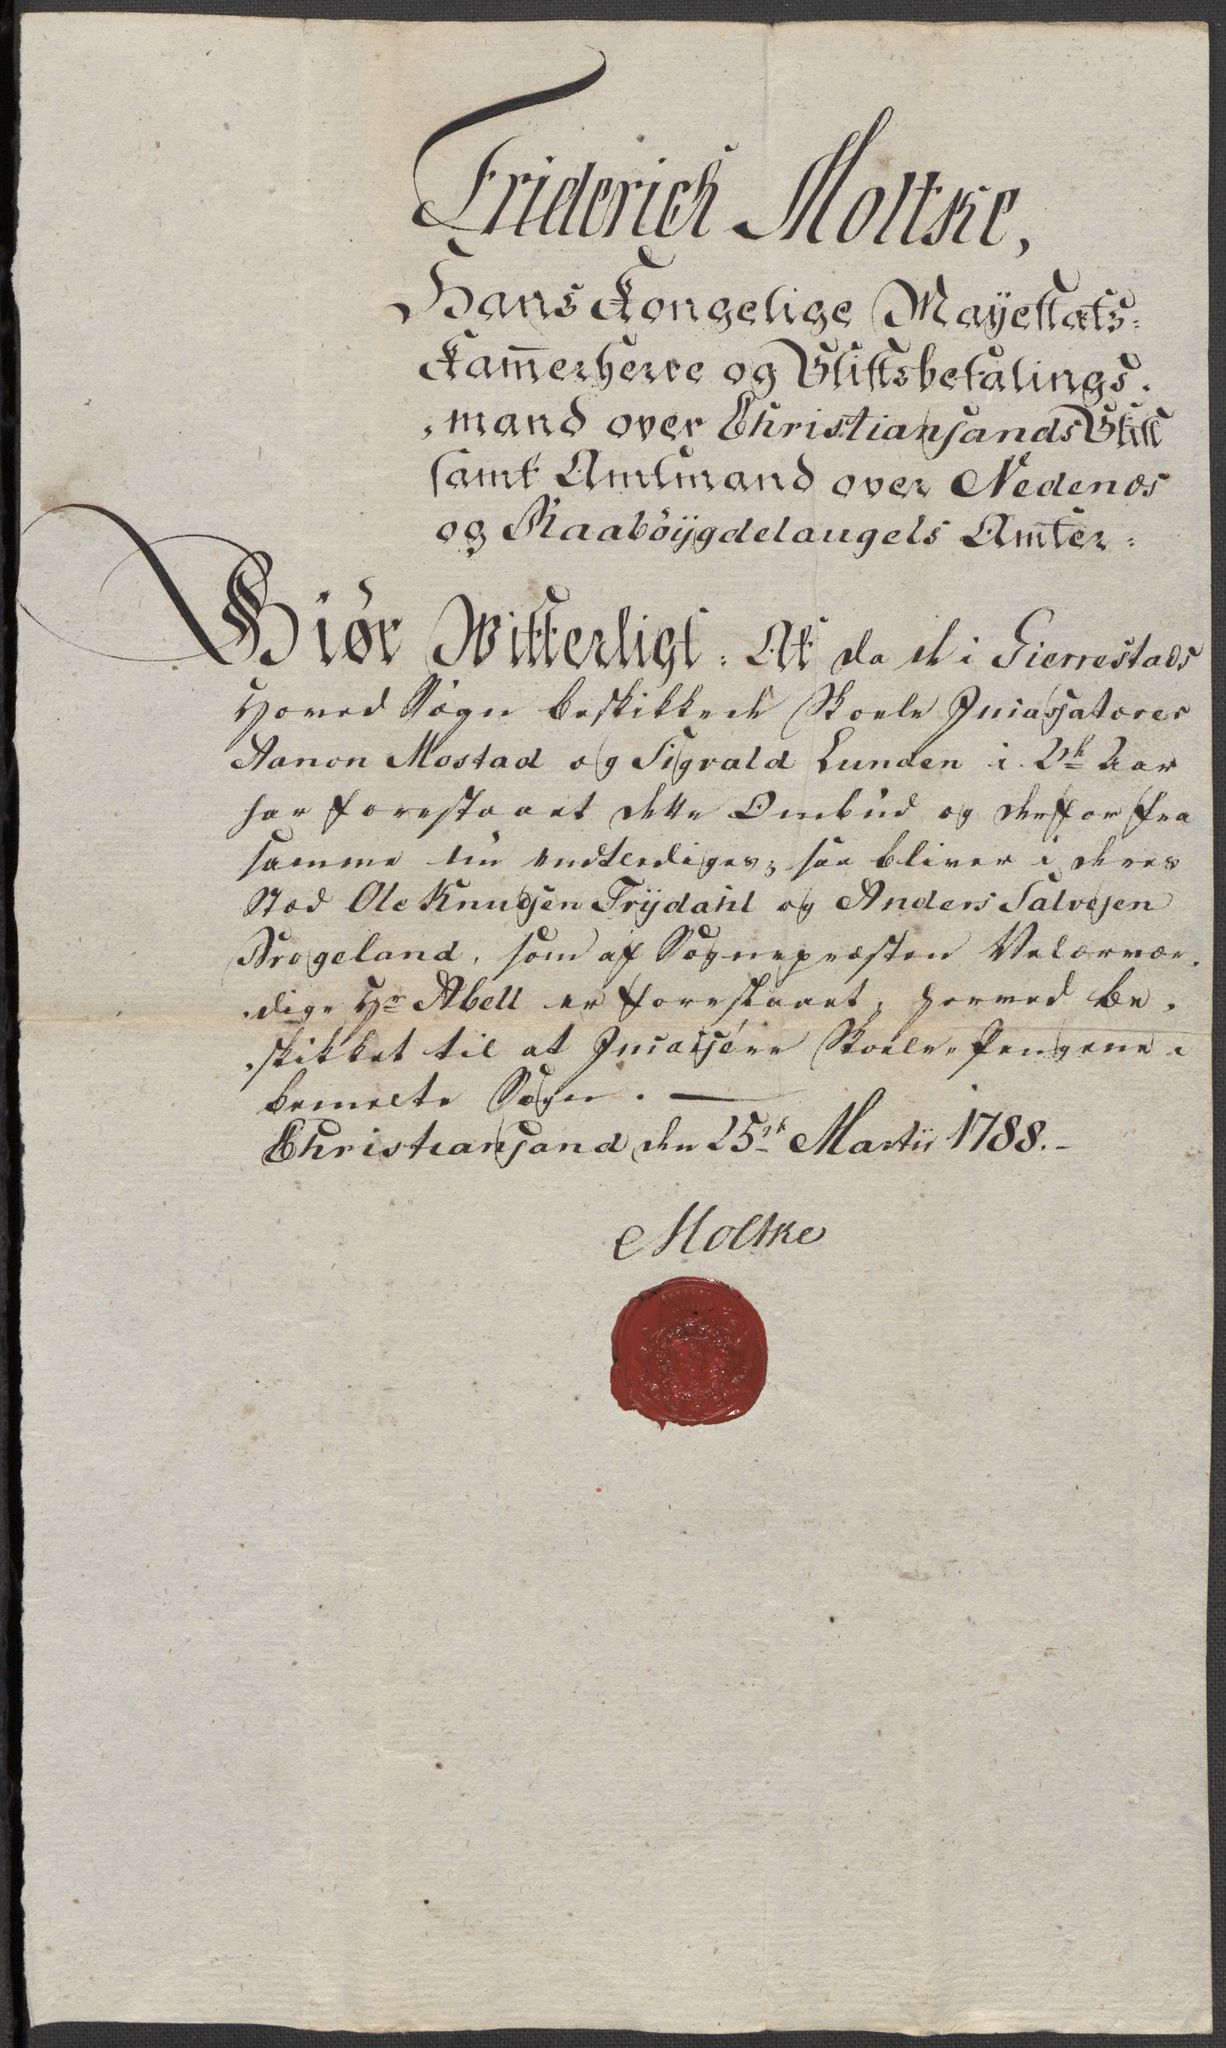 Friderich Moltke,
Hans Kongelige Mayestæts-
Kam̄erherre og Stiftsbefalings-
mand over Christiansands Stift
samt Amtmand over Nedenæs
og Raaböÿgdelaugets Amter:
Giør Witterligt: At da de i Gierrestads
Hoved Sogn beskikkede Skoele Incassatores
Aanon Mostad og Sigvald Lunden i 2de Aar
har forestaaet dette Ombud og derfor fra
samme nu endtlediges; saa bliver i deres
Stæd Ole Knudsen Trÿdahl og Anders Salvesen
Brogeland, som af Sognepræsten Velærvær-
dige Hr Abell er foreslaaet, herved be-
skikket til at Incassere Skoele-Pengene i
bemelte Sogn.
Christiansand den 25de Martii 1788.
Moltke